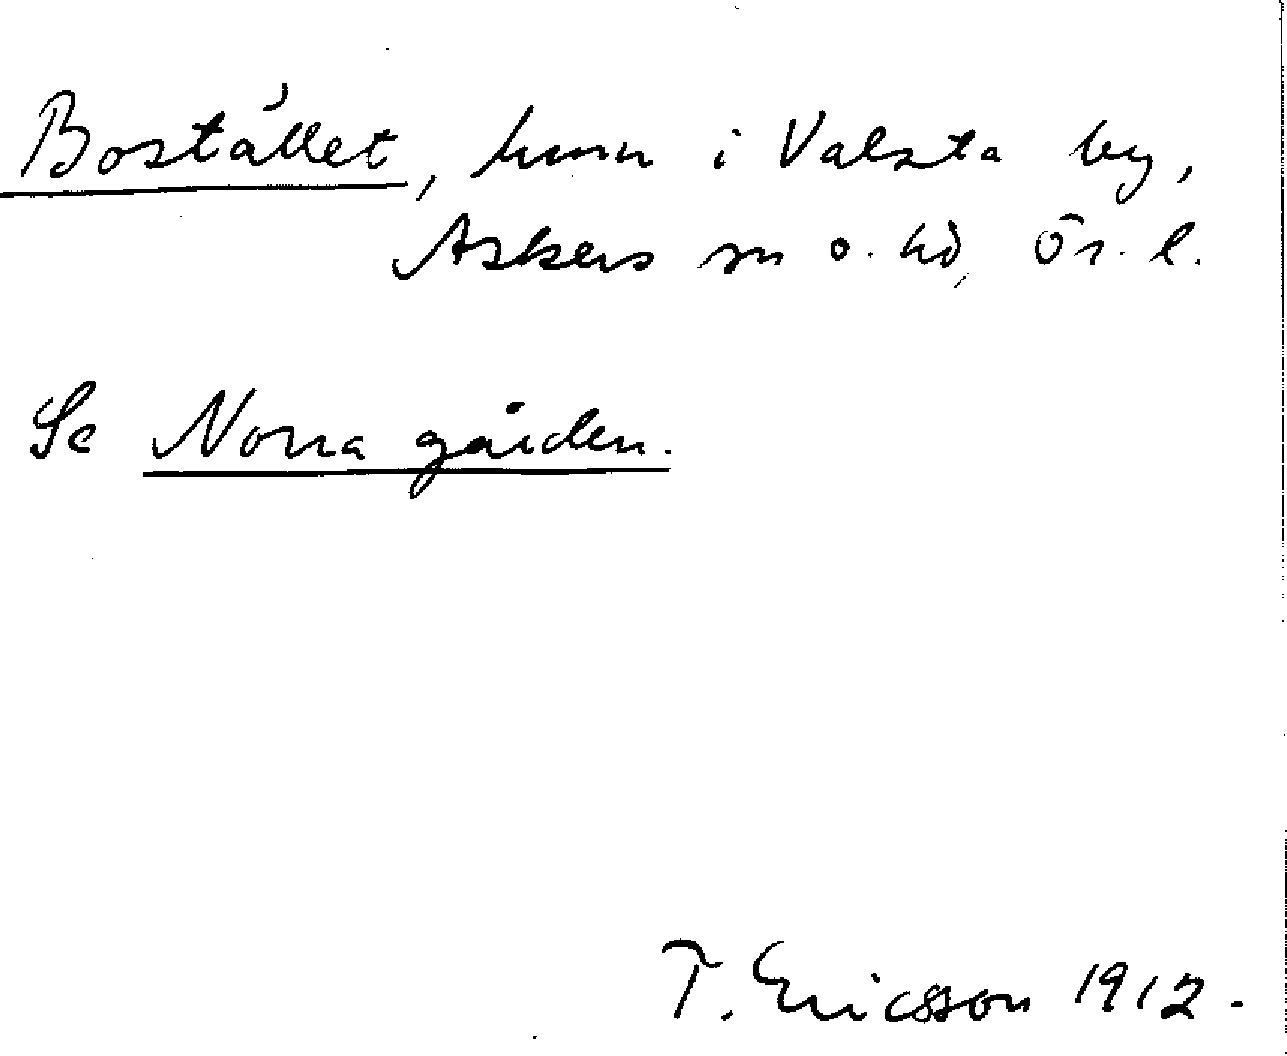 Bostället, hmn i Valsta by,
Askers sn o. hd, Ör. l.
Se Norra gården.
T. Ericsson 1912.